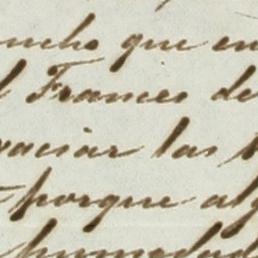 ucho que en
l Frances de
vaciar las
porque alg
humedad